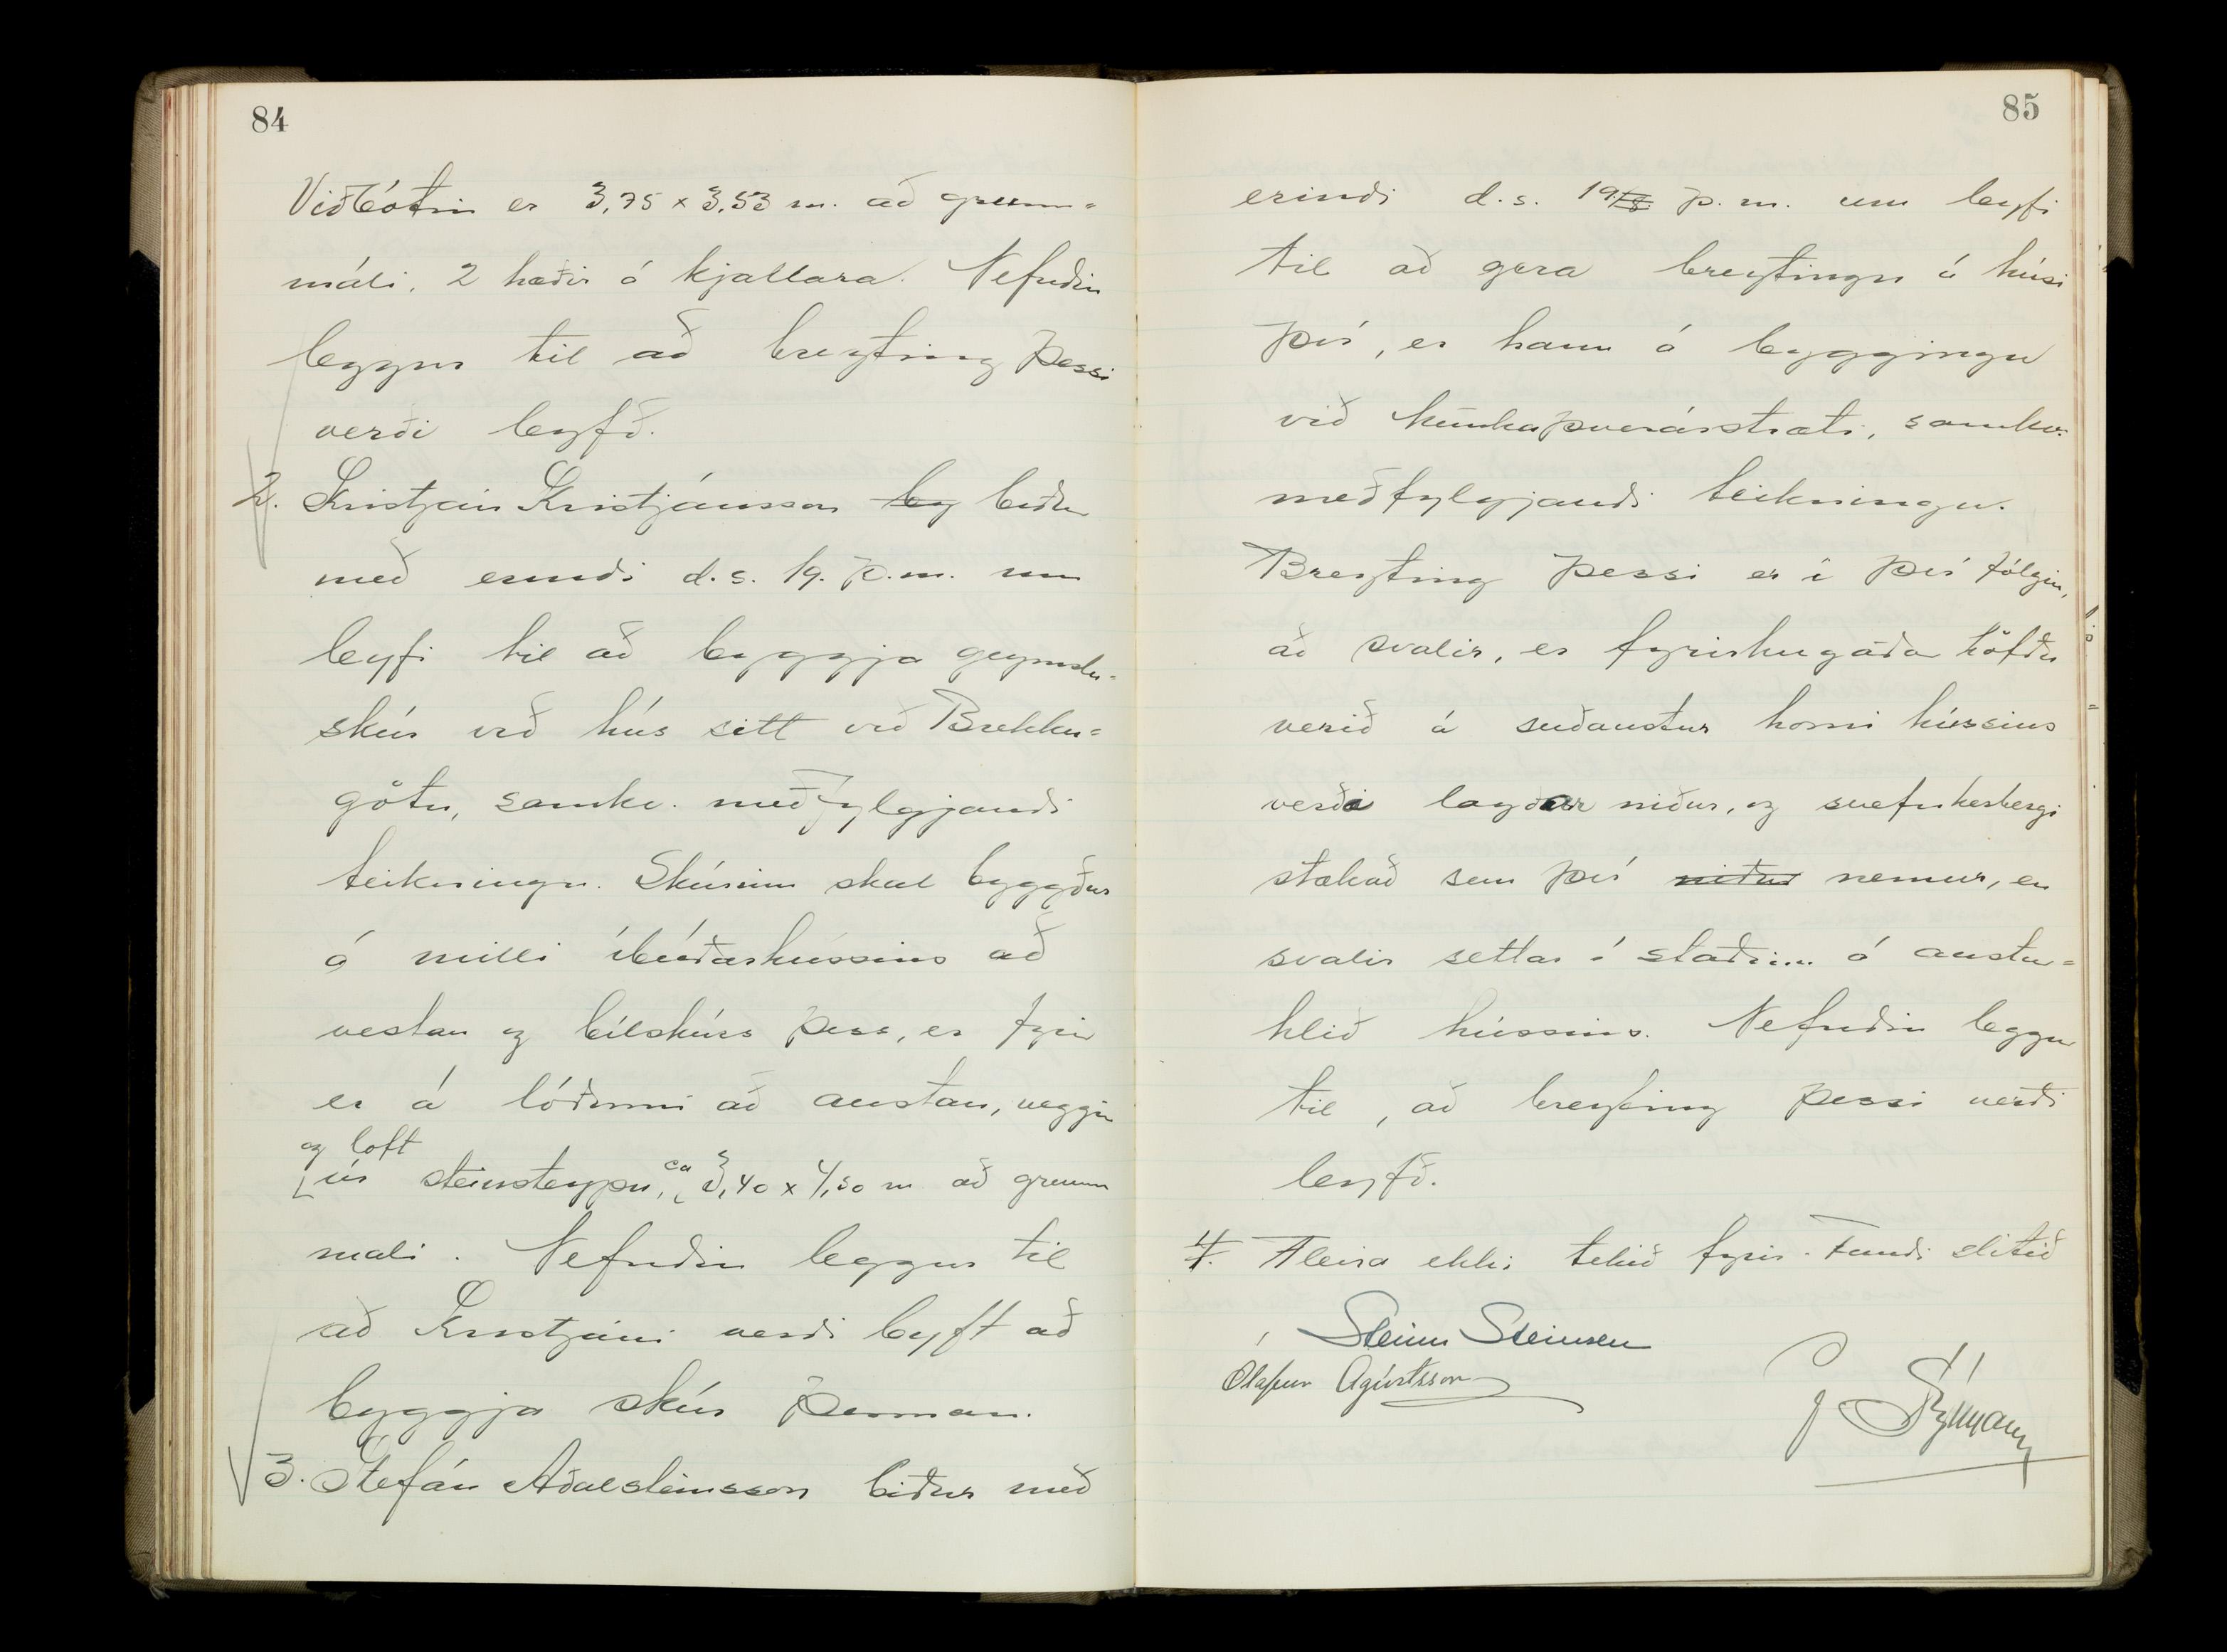 84
Viðbótin er 3,75 x 3,53 m. að grunn=
máli, 2 hæðir á kjallara. Nefndin
leggur til að breyting þessi
verði leyfð.
2. Kristján Kristjánsson ley biður
með erindi d.s. 19. þ.m. um
leyfi til að byggja geymslu=
skúr við hús sitt við Brekku=
götu, samkv. meðfylgjandi
teikningu. Skúrinn skal byggður
á milli íbúðarhússins að
vestan og bílskúrs þess, er fyrir
er á lóðinni að austan, veggir
og loft
úr steinsteypu, ca 3,40 x 4,50 m að grunn
máli. Nefndin leggur til
að Kristjáni verði leyft að
byggja skúr þennan.
3. Stefán Aðalsteinsson biður með
85
erindi d.s. 19/8 þ.m. um leyfi
til að gera breytingu á húsi
því, er hann á byggingu
við Munkaþverárstræti, samkv.
meðfylgjandi teikningu.
Breyting þessi er í því fólgin,
að svalir, er fyrirhugaðar höfðu
verið á suðaustur horni hússins
verði lagðar niður, og svefnherbergi
stækkað sem því niður nemur, en
svalir settar í staðinn á austur=
hlið hússins. Nefndin leggur
til, að breyting þessi verði
leyfð.
4. Fleira ekki tekið fyrir. Fundi slitið
Steinn Steinsen
Ólafur Ágústsson